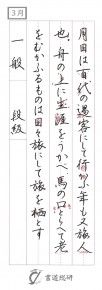 3月
月日は百代の過客にして行かふ年も又旅人
也。舟の上に生涯をうかべ馬の口とらへて老
をむかふるものは日々旅にして旅を栖とす
一般 段級
書道総研